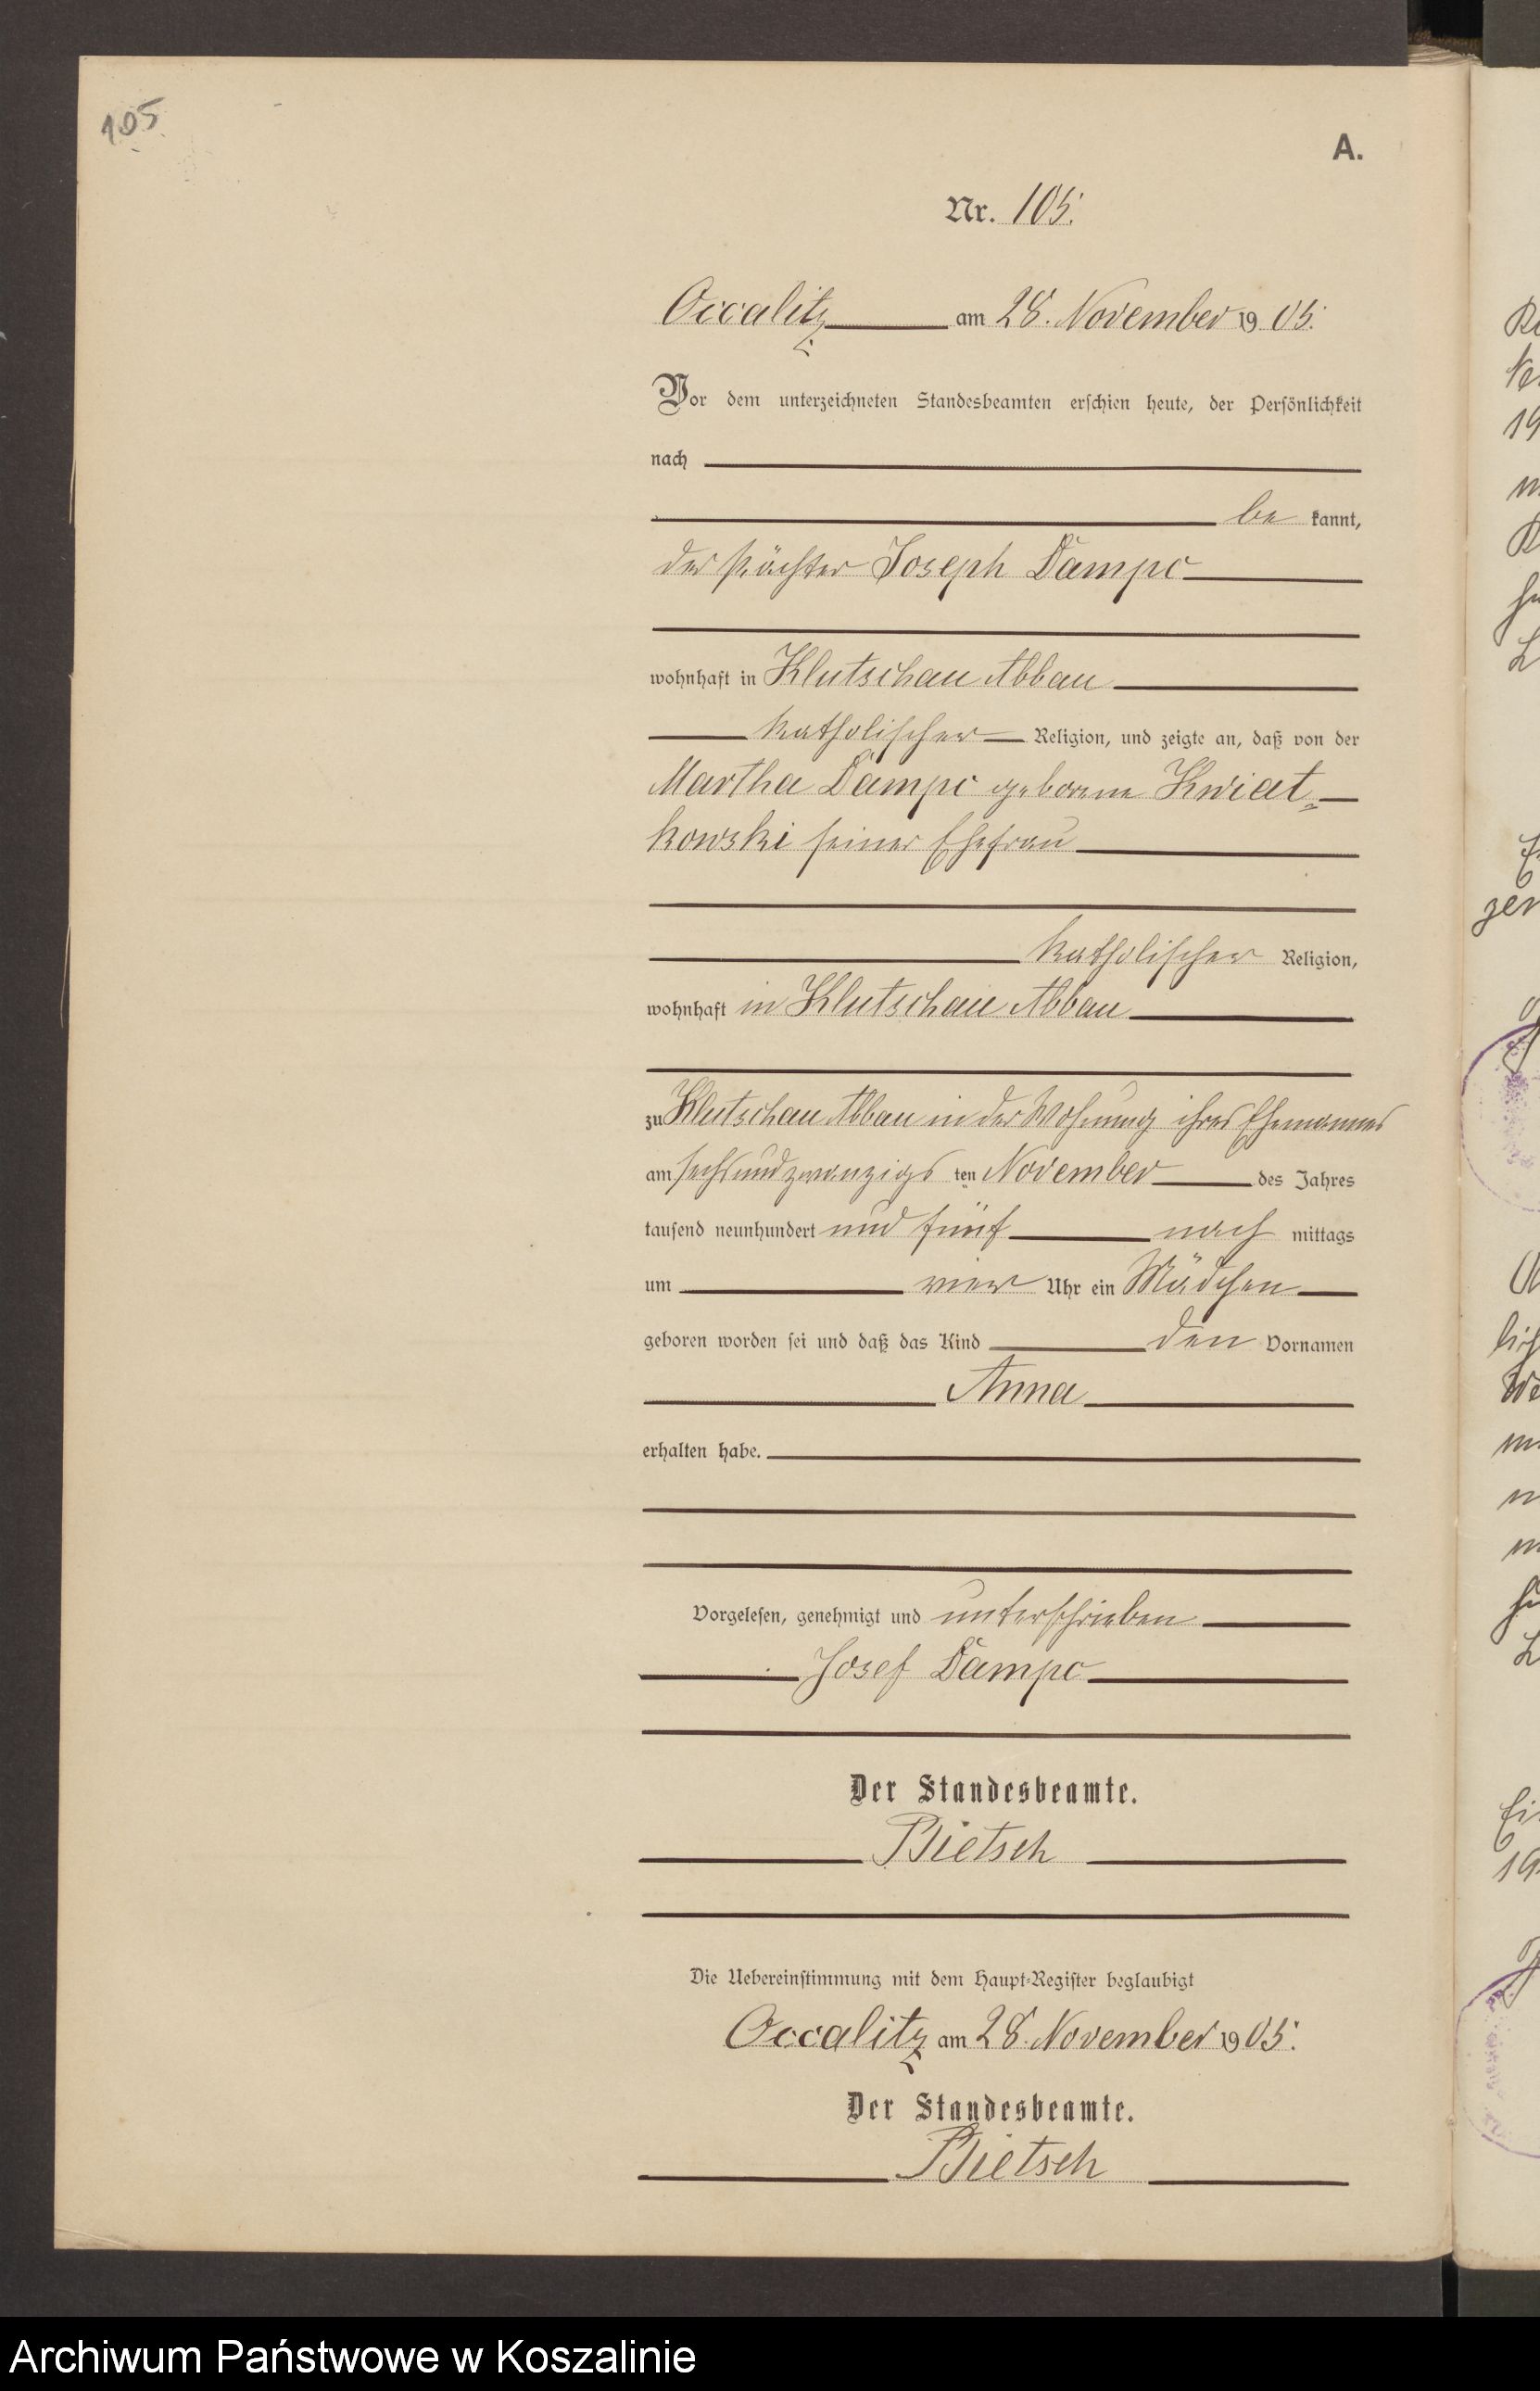 105
A.
Nr. 105.
Occalitz am 28. November 1905.
Vor dem unterzeichneten Standesbeamten erschien heute, der Persönlichkeit
nach
be kannt,
der Pächter Joseph Dampc
wohnhaft in Klutschau Abbau
katholischer Religion, und zeigte an, daß von der
Martha Dampc geborene Kwiat-
kowski seiner Ehefrau
katholischer Religion,
wohnhaft in Klutschau Abbau
zu Klutschau Abbau in der Wohnung ihres Ehemannes
am sechsundzwanzigs ten November des Jahres
tausend neunhundert und fünf nach mittags
um vier Uhr ein Mädchen
geboren worden sei und daß das Kind den Vornamen
Anna
erhalten habe.
Vorgelesen, genehmigt und unterschrieben
Josef Dampc
Der Standesbeamte.
Bietsch
Die Uebereinstimmung mit dem Haupt-Register beglaubigt
Occalitz am 28. November 1905.
Der Standesbeamte.
Bietsch
Archiwum Państwowe w Koszalinie